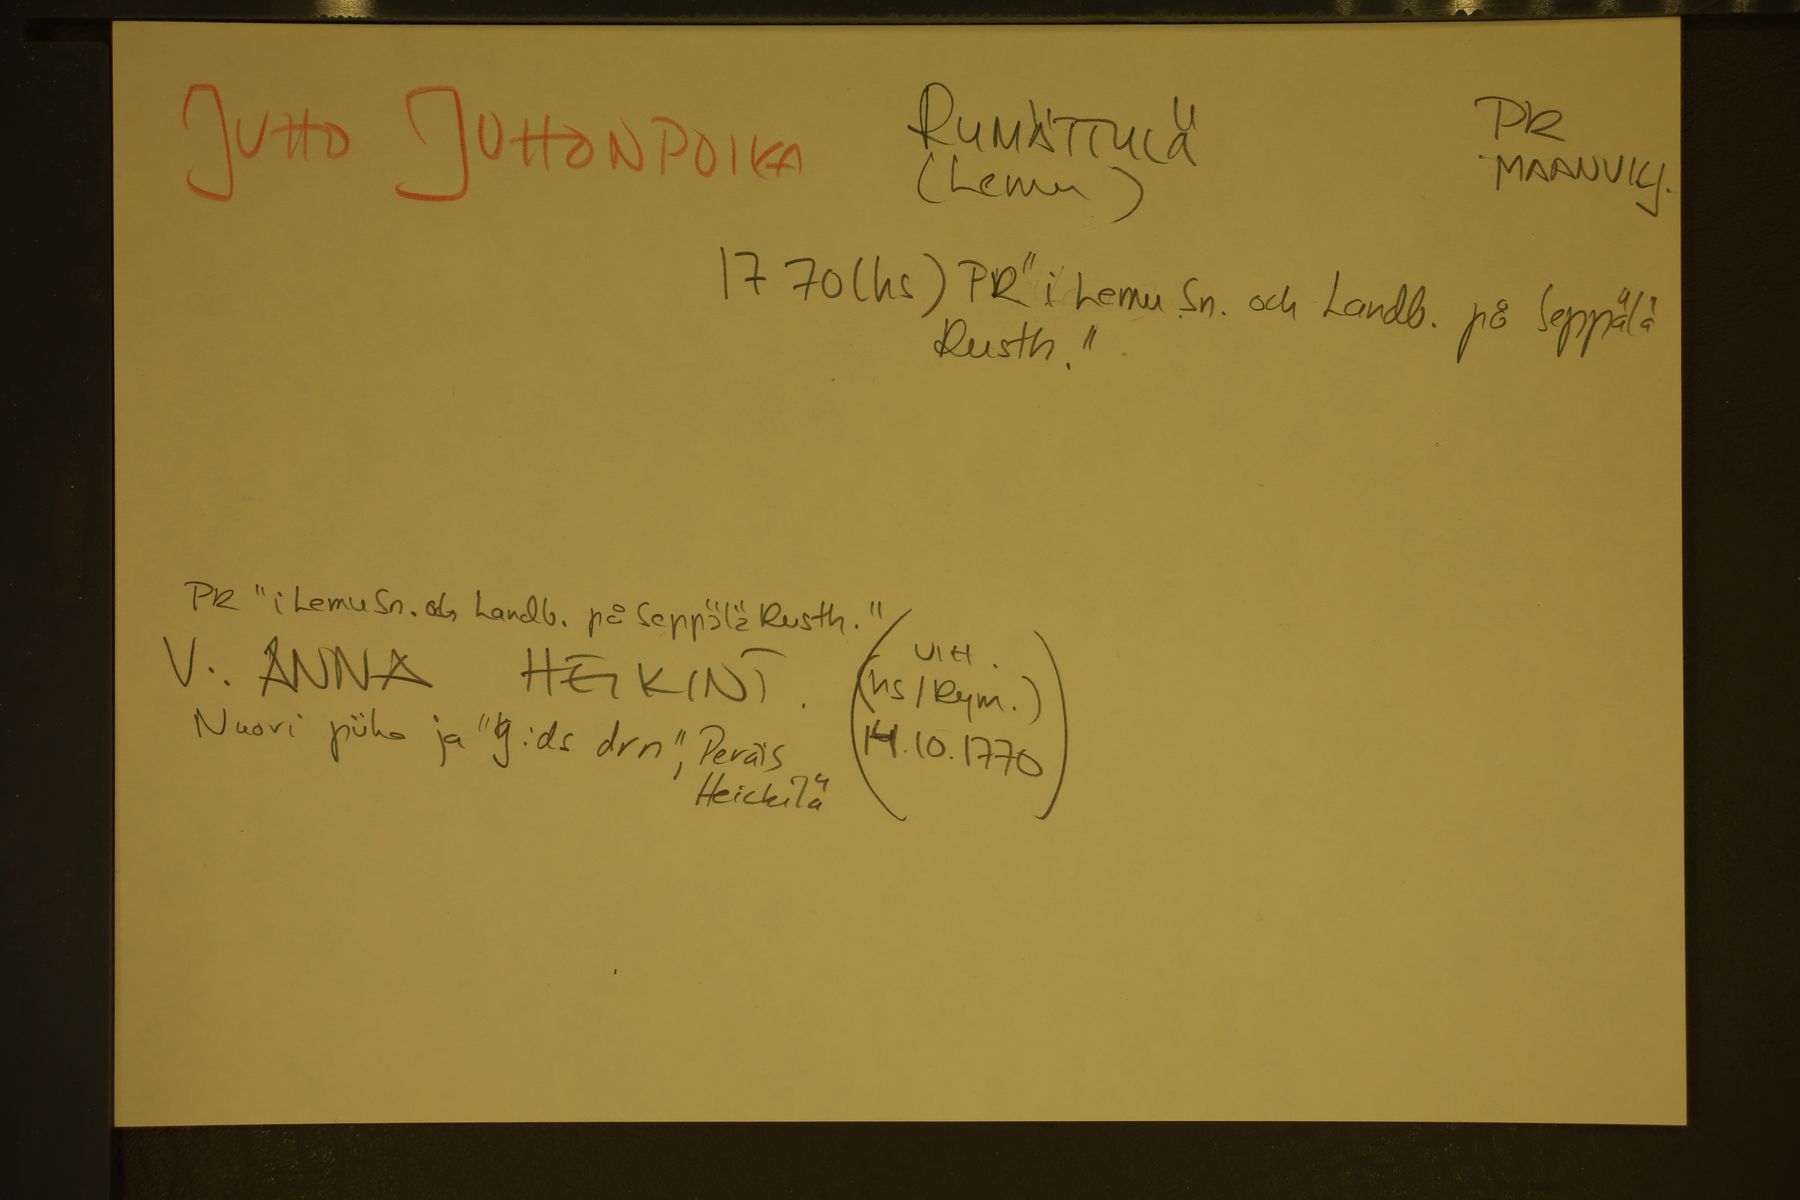 JUHO JUHONPOIKA RUMÄTTYLÄ PR
(Lemu) MAANVILJ.
1770(hs) PR "i Lemu Sn. och Landb. på Seppälä
Rusth."
PR "i Lemu Sn. och Landb. på Seppälä Rusth."
V:. ANNA HEIKINT. VIH.
(hs/Rym.)
Nuori piika ja "g:ds drn", Peräis 14.10.1770
Heickilä